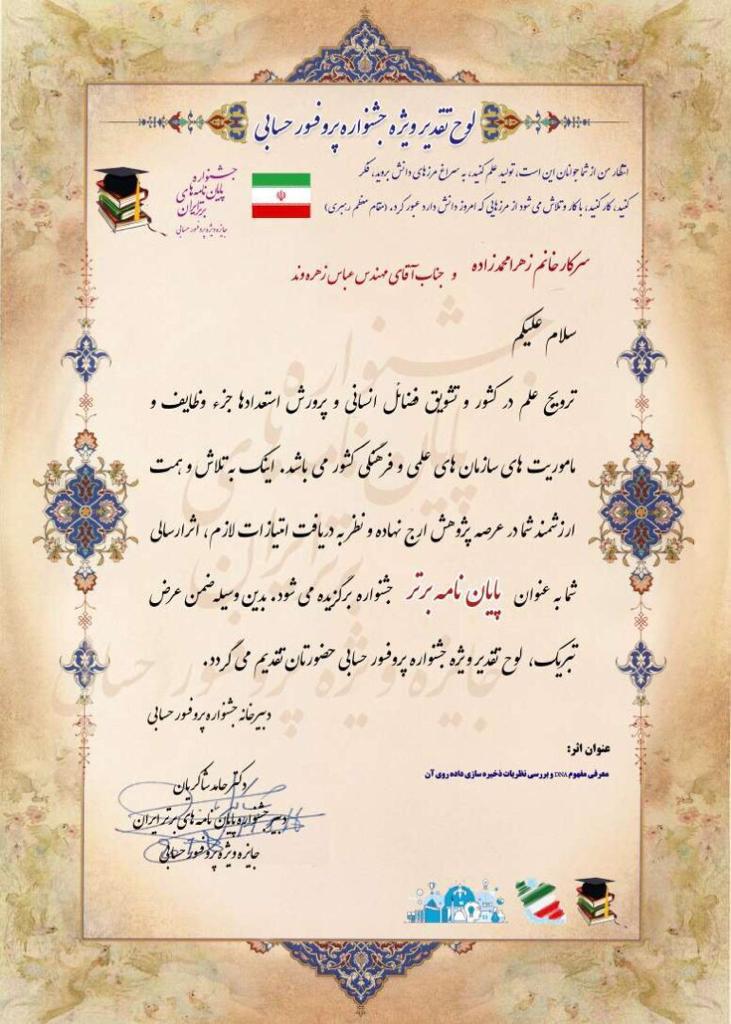 لوح تقدیر ویژه جشنواره پروفسور حسابی
انتظار من از شما جوانان این است، تولید علم کنید، به سراغ مرزهای دانش بروید، فکر
کنید، کار کنید، با کار و تلاش می شود از مرزهایی که امروز دانش دارد عبور کرد. (مقام معظم رهبری)
جشنواره
پایان نامه های
برتر ایران
جایزه ویژه پروفسور حسابی
سرکار خانم زهرا محمدزاده و جناب آقای مهندس عباس زهره وند
سلام علیکم
ترویج علم در کشور و تشویق فضائل انسانی و پرورش استعدادها جزء وظایف و
ماموریت های سازمان های علمی و فرهنگی کشور می باشد. اینک به تلاش و همت
ارزشمند شما در عرصه پژوهش ارج نهاده و نظر به دریافت امتیازات لازم، اثر ارسالی
شما به عنوان پایان نامه برتر جشنواره برگزیده می شود. بدین وسیله ضمن عرض
تبریک، لوح تقدیر ویژه جشنواره پروفسور حسابی حضورتان تقدیم می گردد.
دبیرخانه جشنواره پروفسور حسابی
عنوان اثر:
معرفی مفهوم DNA و بررسی نظریات ذخیره سازی داده روی آن
دکتر حامد شاکریان
دبیر جشنواره پایان نامه های برتر ایران
جایزه ویژه پروفسور حسابی
جشنواره
پایان نامه های
برتر ایران
جایزه ویژه پروفسور حسابی